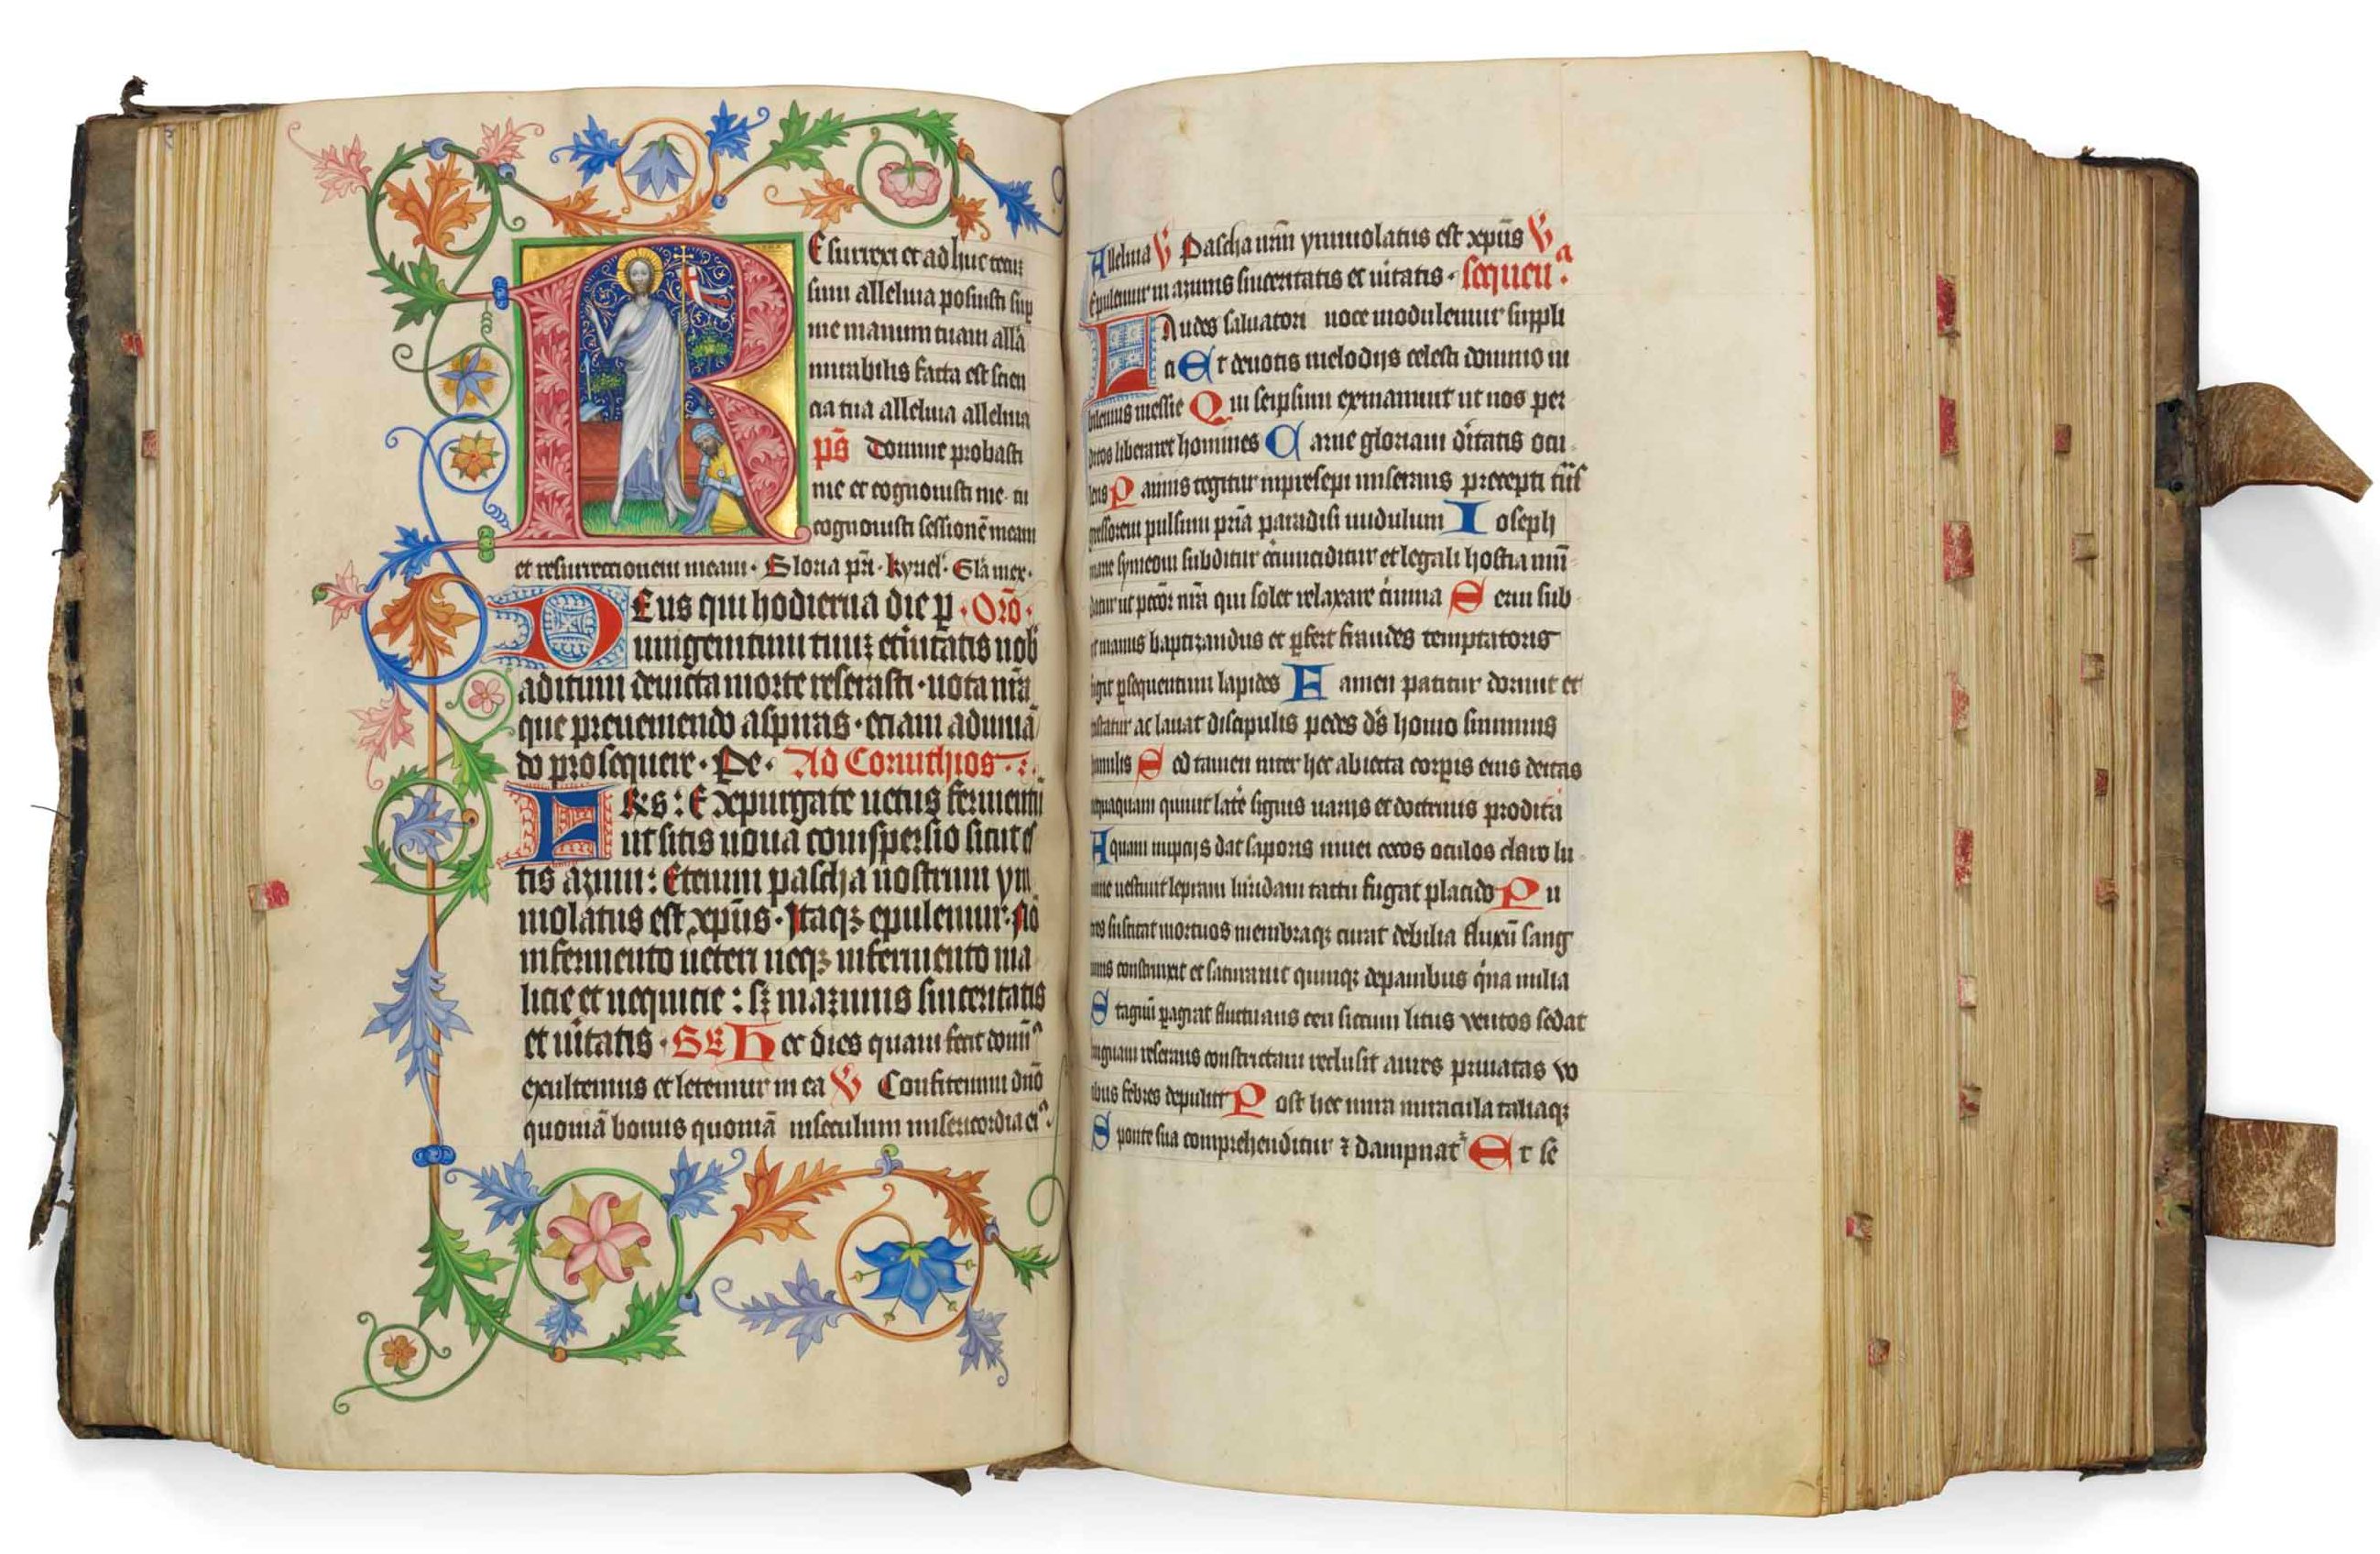 R Esurrexi et adhuc tecuz
sum alleluia posuisti sup
me manum tuam alla
mirabilis facta est scien
cia tua alleluia alleluia
ps̄ Domine probasti
me et cognouisti me tu
cognouisti sessionē meam
et resurrectionem meam · Gloria pr̄i · kyriel · Gl̄a in ex ·
DEus qui hodierna die p · Orō ·
unigenitum tuuz et̄nitatis nob̄
aditum deuicta morte reserasti · uota nr̄a
que preueniendo aspiras · eciam adiuuā
do prosequere · Per · Ad Corinthios
FRēs : Expurgate uetus fermentū
ut sitis noua conspersio sicut es
tis azimi : Etenim pascha nostrum ym
molatus est xpūs · Itaqz epulemur · Nō
in fermento ueteri neqz in fermento ma
licie et nequicie : sz in azimis sinceritatis
et uītatis · GR Hec dies quam fecit domī
exultemus et letemur in ea V Confitemini dn̄o
quoniā bonus quoniā in seculum misericordia ei9
Alleluia V Pascha nr̄m ymmolatus est xpūs V
Epulemur in azimis sinceritatis et uītatis · sequen a
Laudes saluatori uoce modulemur suppli
ci Et deuotis melodijs celesti domino iu
bilemus messie Qui seipsum exinaniuit ut nos per
ditos liberaret homines Carne gloriam dītatis occu
lens Pannis tegitur in presepi miserans precepti
gressorem pulsum pr̄ia paradisi nudulum Ioseph
marie symeoni subditur circumciditur et legali hostia mū
datur ut pctōr nr̄a qui solet relaxare crimina Serui sub
it manus baptizandus et pfert fraudes temptatoris
fugit psequentum lapides Famem patitur dormit et
tristatur ac lauat discipulis pedes ds̄ homo summus
humilis Sed tamen inter hec abiecta corpis eius deitas
nequaquam quiuit late signis uarijs et doctrinis prodita
Aquam nupcijs dat saporis uinei cecos oculos claro lu
mine uestiuit lepram luridam tactu fugat placido Pu
tres suscitat mortuos membraqz curat debilia fluxū sang
uinis constrinxit et saturauit quinqz de panibus q̄na milia
Stagnū pagrat fluctuans ceu siccum litus uentos sedat
linguam reserans constrictam reclusit aures priuatas uo
cibus febres depulit Post hec mira miracula taliaqz
Sponte sua comprehenditur z dampnat Et se